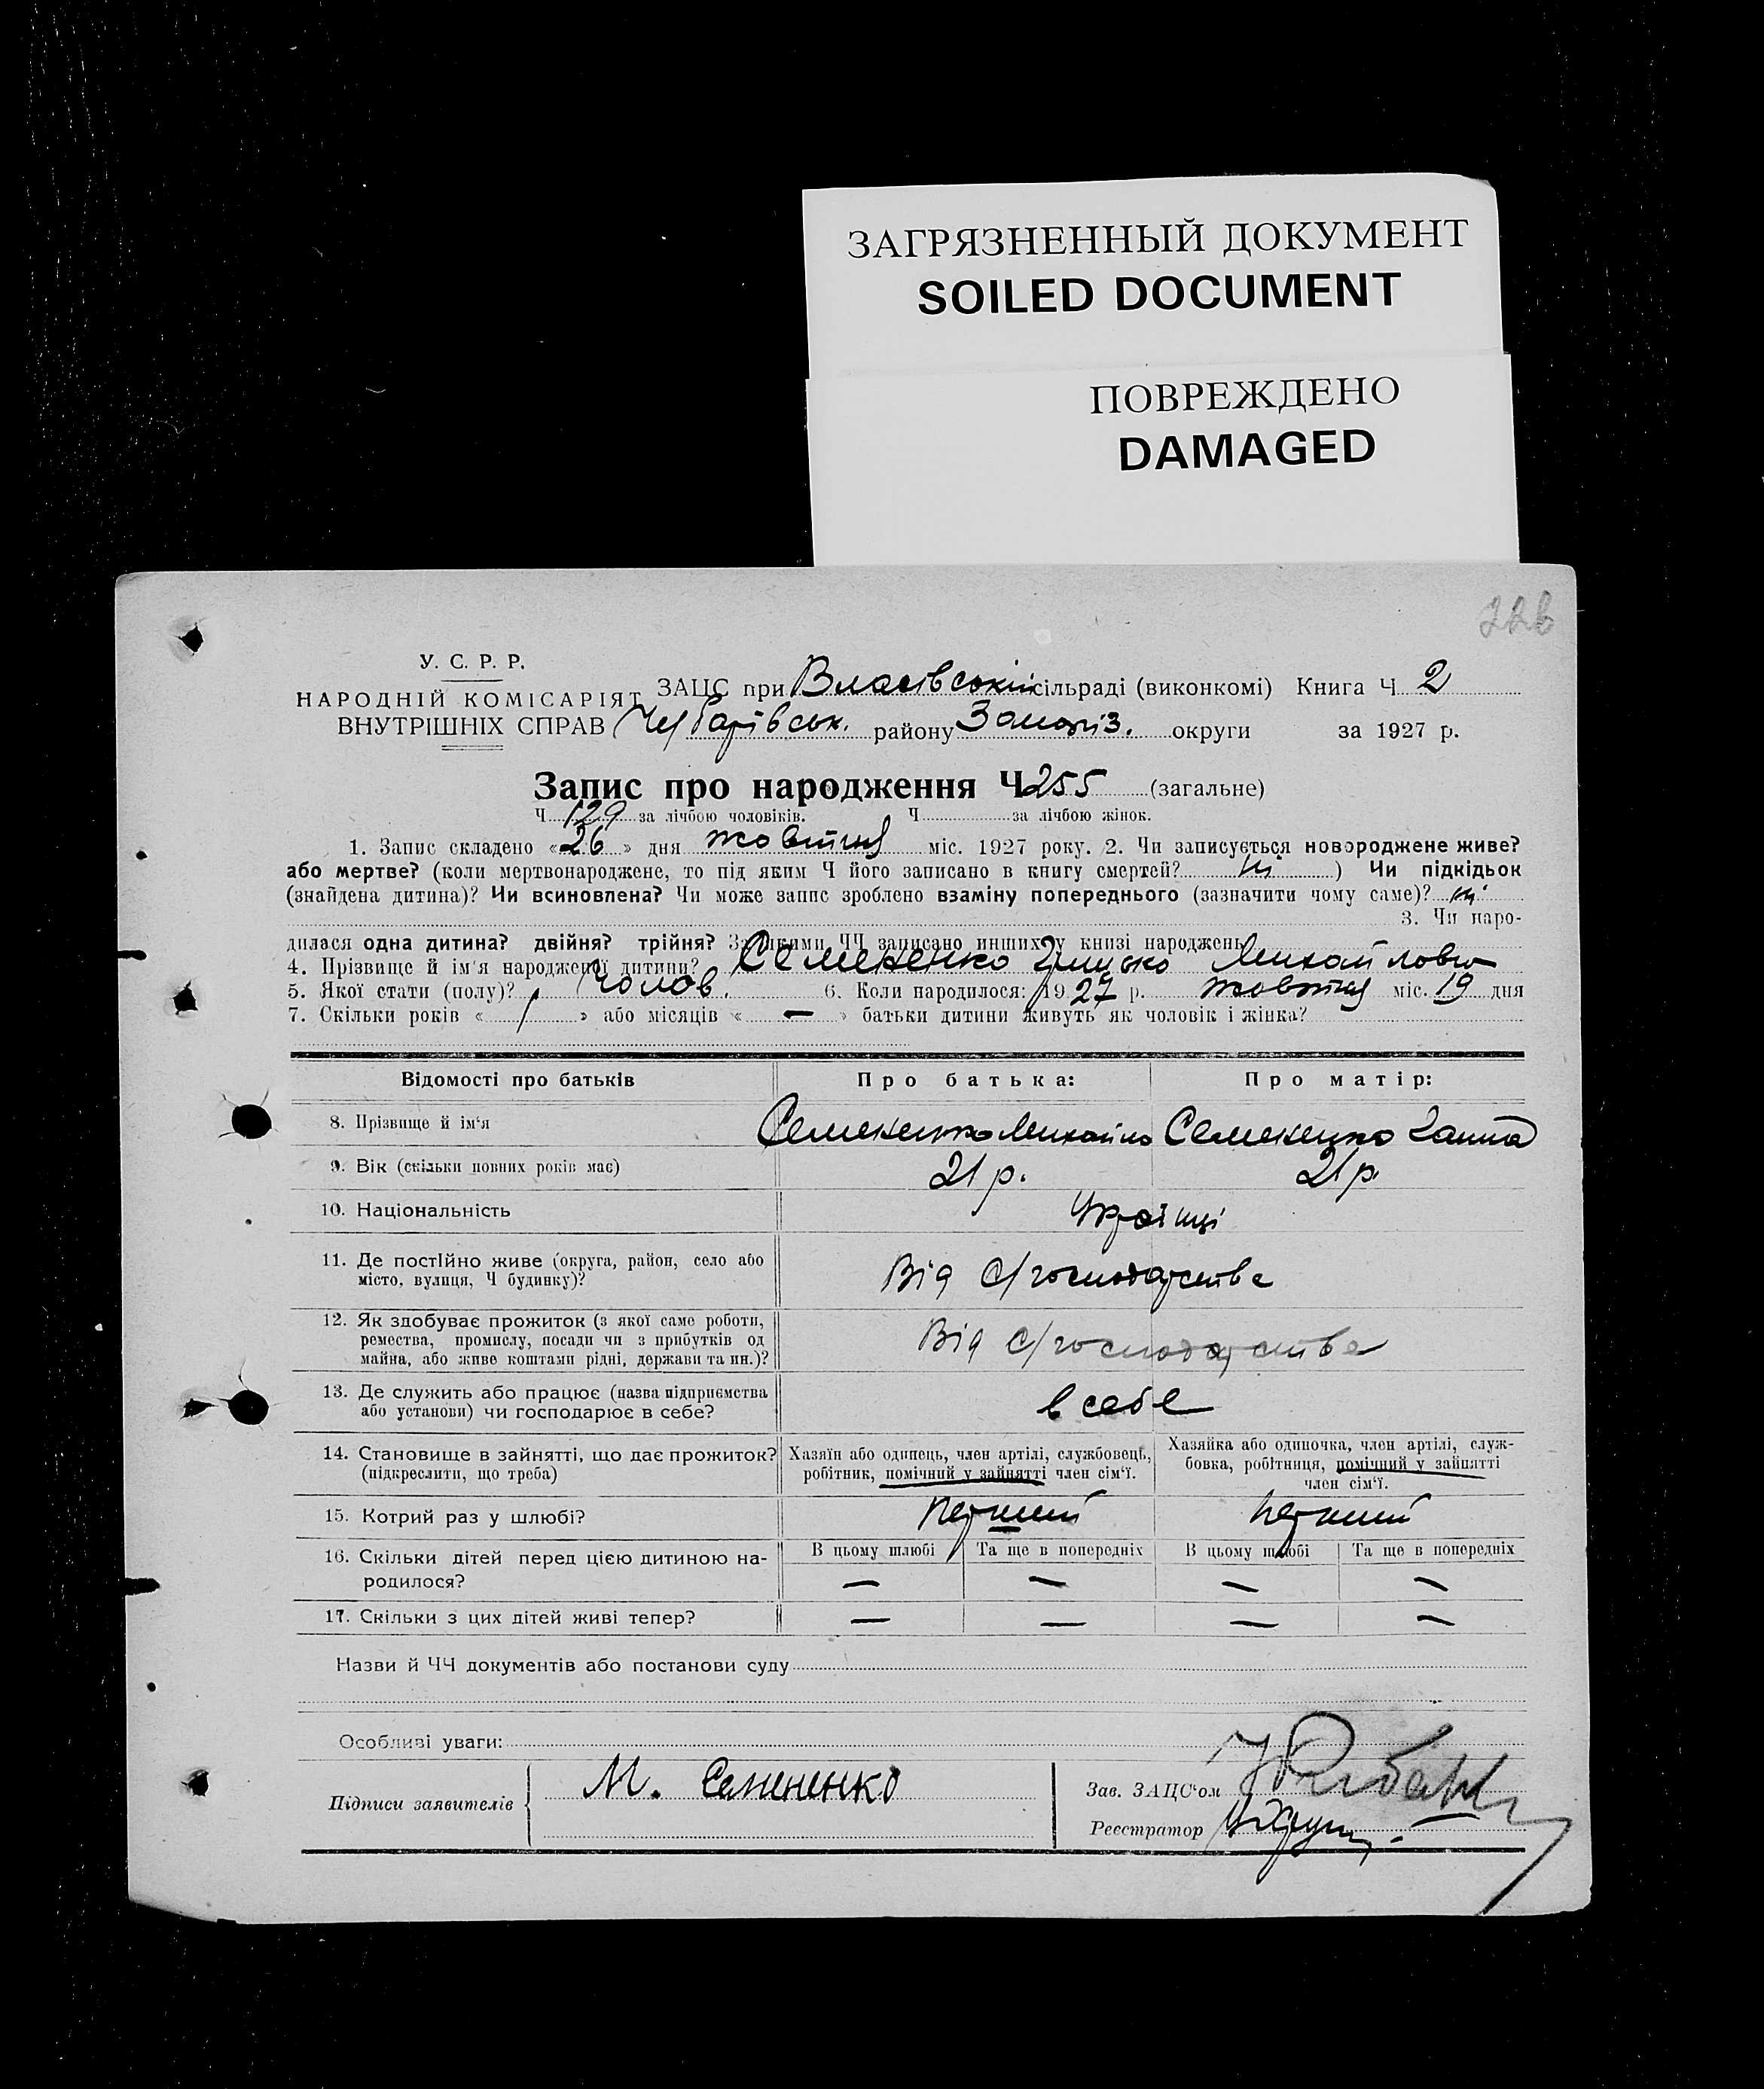 ЗАГРЯЗНЕННЫЙ ДОКУМЕНТ
SOILED DOCUMENT
ПОВРЕЖДЕНО
DAMAGED
У. С. Р. Р.
НАРОДНІЙ КОМІСАРІЯТ
ВНУТРІШНІХ СПРАВ
ЗАЦС при Власівській сільраді (виконкомі) Книга Ч 2
району Запоріз. округи за 1927 р.
Запис про народження Ч 255 (загальне)
Ч 129 за лічбою чоловіків. Ч за лічбою жінок.
1. Запис складено «26» дня жовтня міс. 1927 року. 2. Чи записується новороджене живе?
або мертве? (коли мертвонароджене, то під яким Ч його записано в книгу смертей? ні ) Чи підкідьок
(знайдена дитина)? Чи всиновлена? Чи може запис зроблено взаміну попереднього (зазначити чому саме)? ні
3. Чи наро-
дилася одна дитина? двійня? трійня? За якими ЧЧ записано инших у книзі народжень
4. Прізвище й ім'я народженої дитини? Семененко Михайлович
5. Якої стати (полу)? Чолов. 6. Коли народилося: 1927 р. жовтня міс. 19 дня
7. Скільки років « 1 » або місяців « — » батьки дитини живуть як чоловік і жінка?
Відомості про батьків Про батька: Про матір:
8. Прізвище й ім'я Семененко Михайло Семененко Ганна
9. Вік (скільки повних років має) 21 р. 21 р.
10. Національність Українці
11. Де постійно живе (округа, район, село або
місто, вулиця, Ч будинку)? Від с/господарства
12. Як здобуває прожиток (з якої саме роботи,
ремества, промислу, посади чи з прибутків од
майна, або живе коштами рідні, держави та ин.)? Від с/господарства
13. Де служить або працює (назва підприємства
або установи) чи господарює в себе? в себе
14. Становище в зайнятті, що дає прожиток?
(підкреслити, що треба)
Хазяїн або одинець, член артілі, службовець,
робітник, помічний у зайнятті член сім'ї.
Хазяйка або одиночка, член артілі, служ-
бовка, робітниця, помічний у зайнятті
член сім'ї.
15. Котрий раз у шлюбі? перший перший
16. Скільки дітей перед цією дитиною на-
родилося?
В цьому шлюбі Та ще в попередніх В цьому шлюбі Та ще в попередніх
— — — —
17. Скільки з цих дітей живі тепер? — — — —
Назви й ЧЧ документів або постанови суду
Особливі уваги:
Підписи заявителів М. Семененко
Зав. ЗАЦС'ом
Реєстратор